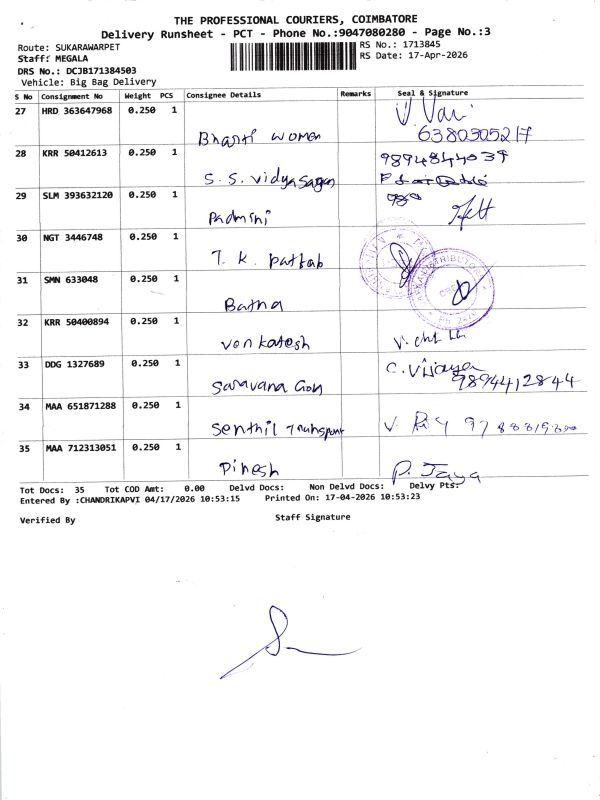 THE PROFESSIONAL COURIERS, COIMBATORE
Delivery Runsheet - PCT - Phone No.:9047080280 - Page No.:3
Route: SUKARAWARPET
RS No.: 1713845
Staff: MEGALA
RS Date: 17-Apr-2026
DRS No.: DCJB171384503
Vehicle: Big Bag Delivery
S No Consignment No Weight PCS Consignee Details Remarks Seal & Signature
27 HRD 363647968 0.250 1
Bharti women
6380305217
28 KRR 50412613 0.250 1
9894844037
S. S. Vidyasagar
29 SLM 393632120 0.250 1
Padmini
30 NGT 3446748 0.250 1
T. K. Pattab
31 SMN 633048 0.250 1
Batna
32 KRR 50400894 0.250 1
Venkatesh
33 DDG 1327689 0.250 1
C. Vijaya
Saravana Gon 9894412844
34 MAA 651871288 0.250 1
Senthil Transport
35 MAA 712313051 0.250 1
Dinesh P. Jaya
Tot Docs: 35 Tot COD Amt: 0.00 Delvd Docs: Non Delvd Docs: Delvy Pts:
Entered By :CHANDRIKAPVI 04/17/2026 10:53:15 Printed On: 17-04-2026 10:53:23
Verified By Staff Signature